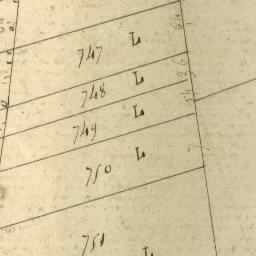 747 L
748 L
749 L
750 L
751 L